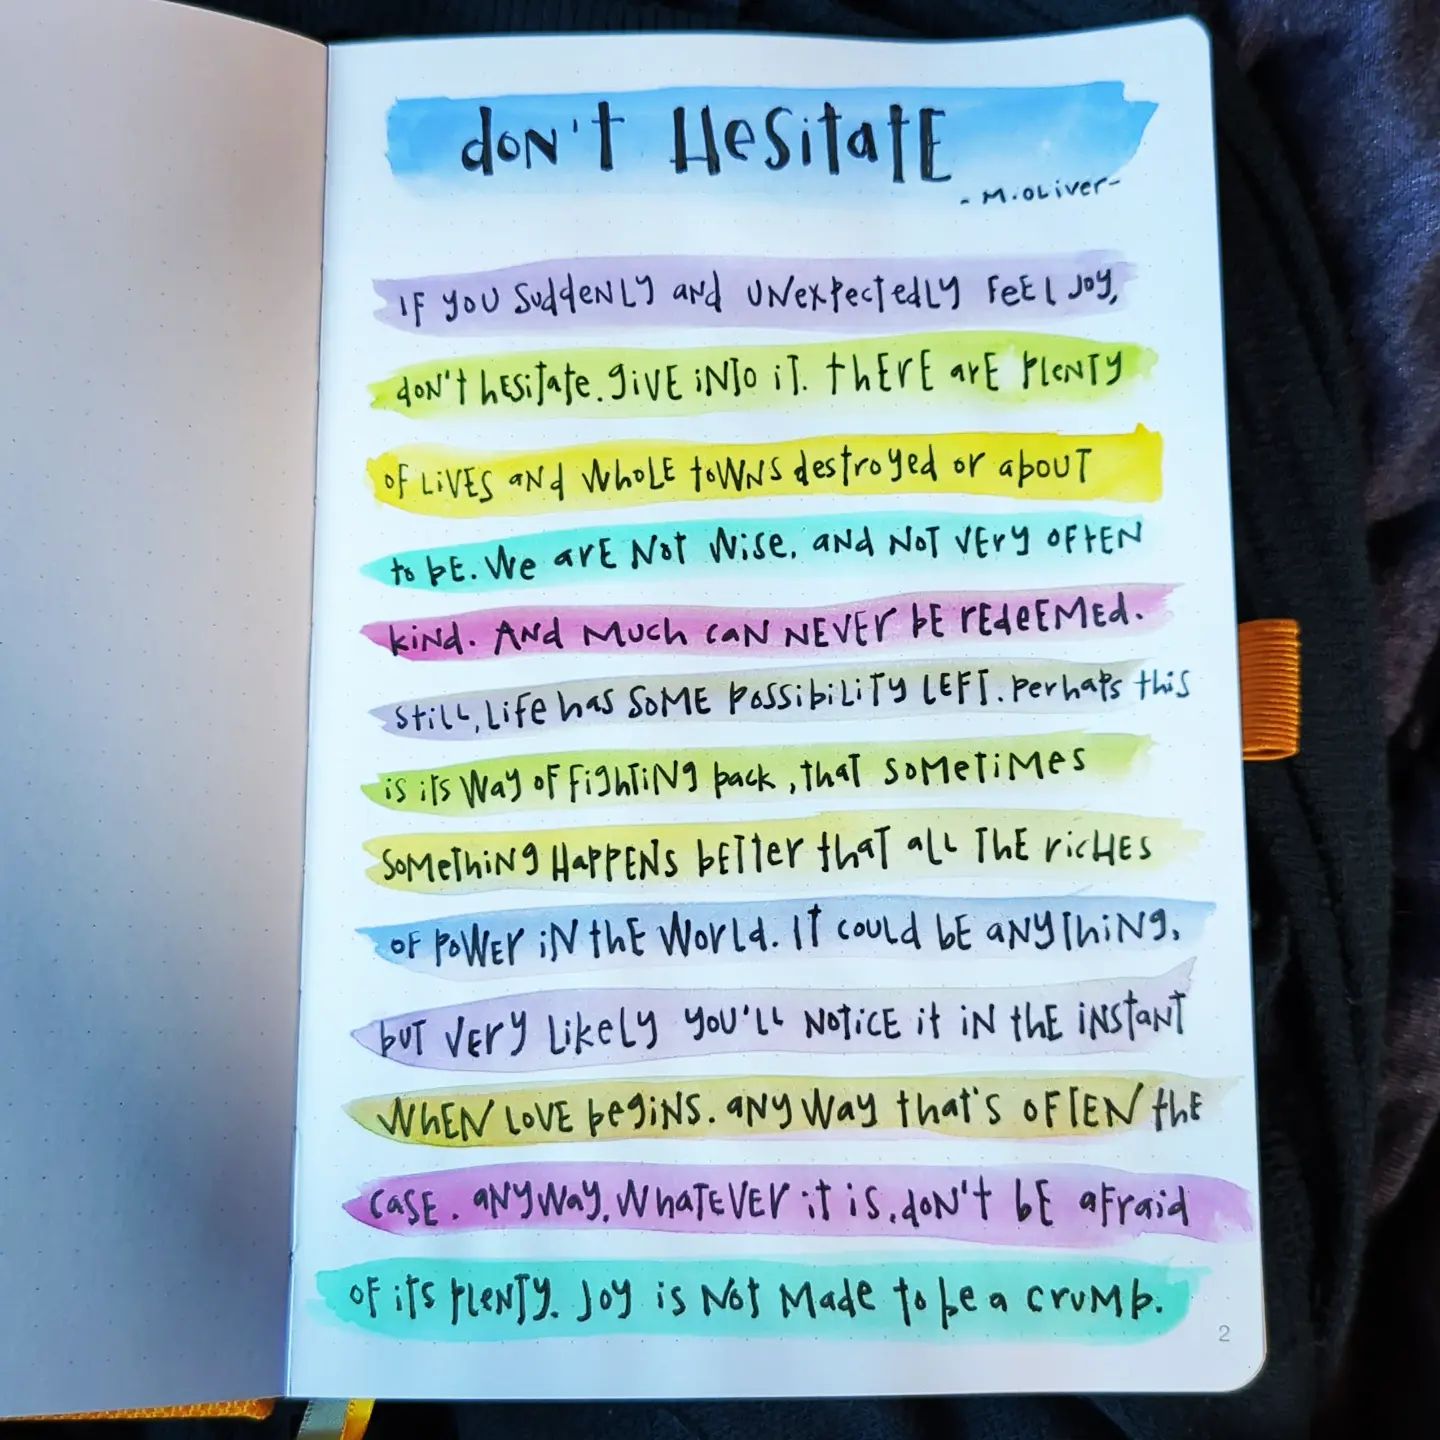 don't Hesitate
- M. Oliver -
If you suddenly and unexpectedly feel joy,
don't hesitate. give into it. there are plenty
of lives and whole towns destroyed or about
to be. We are not wise, and not very often
kind. And much can never be redeemed.
still, life has some possibility left. perhaps this
is its way of fighting back, that sometimes
something happens better that all the riches
of power in the world. It could be anything,
but very likely you'll notice it in the instant
when love begins. any way that's often the
case. anyway, whatever it is, don't be afraid
of its plenty. Joy is not made to be a crumb.
2